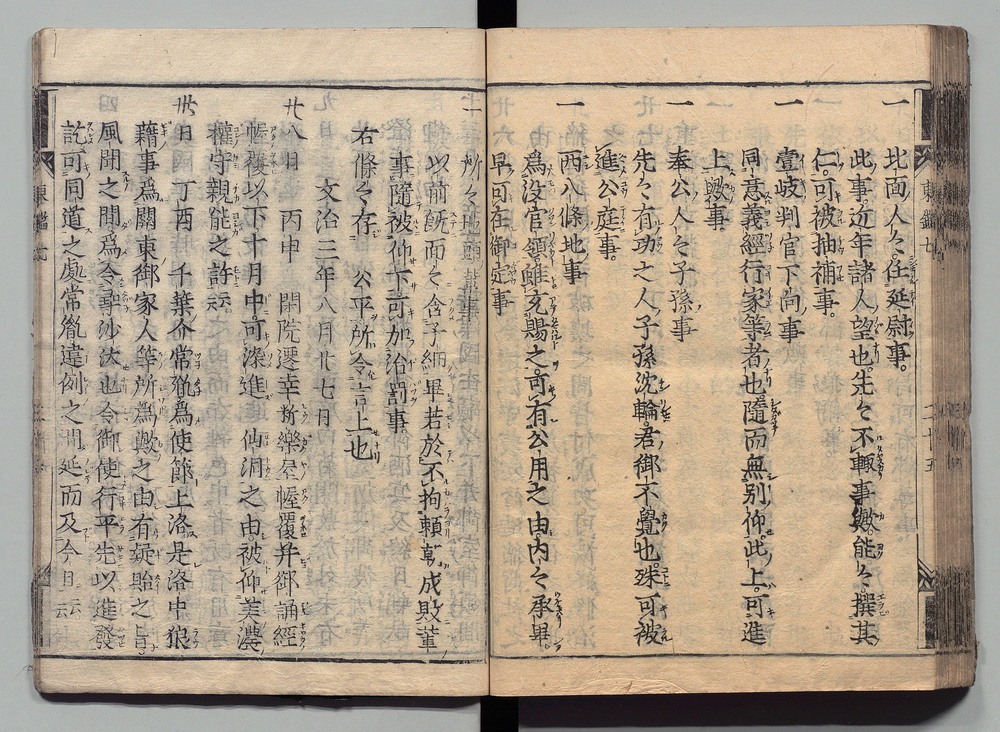 一
北面人々任延尉事
此事近年諸人望也先々不輙事歟能々撰其
仁可被抽補事
一
壹岐判官下向事
同意義經行家等者也隨而無別仰此上可進
上歟事
一
奉公人々子孫事
先々有功之人子孫沈輪者御不覺也殊可被
進公庭事
一
西八條地事
為没官領雖充賜之可有公用之由内々承畢
早可在御定事
一
所々地頭等事
以前既面々含子細畢若於不拘頼朝成敗輩
事隨被仰下可加治罰事
右條々存 公平所令言上也
文治三年八月廿七月
廿八日 丙申 閑院遷幸新樂屋幄覆并御誦經
幄覆以下十月中可漆進 仙洞之由被仰美濃
權守親能之許云云
卅日 丁酉 千葉介常胤為使節上洛是洛中狼
藉事為關東御家人等所為歟之由有疑貽之旨
風聞之間為令尋沙汰也令御使行平先以進發
訖可同道之處常胤違例之間延而及今日云云
東鑑七